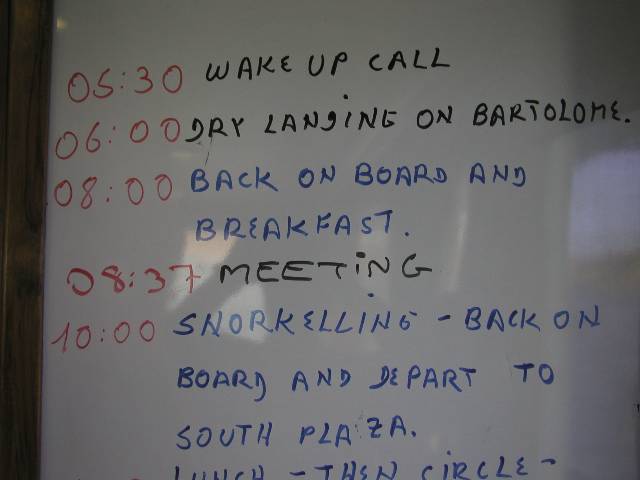 05:30 WAKE UP CALL
06:00 DRY LANDING ON BARTOLOME.
08:00 BACK ON BOARD AND
BREAKFAST.
08:37 MEETING
10:00 SNORKELLING - BACK ON
BOARD AND DEPART TO
SOUTH PLAZA.
LUNCH - THEN CIRCLE -